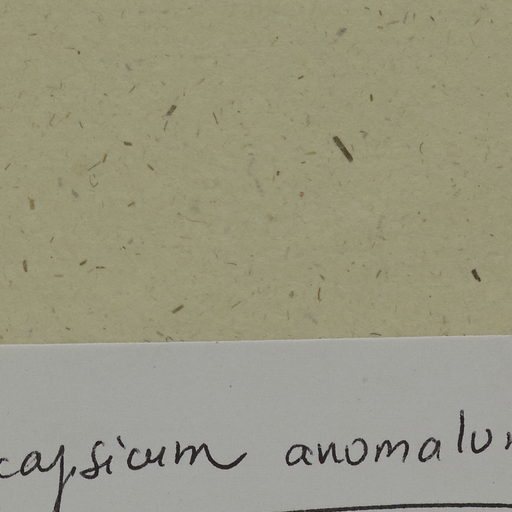 capsicum anomalu